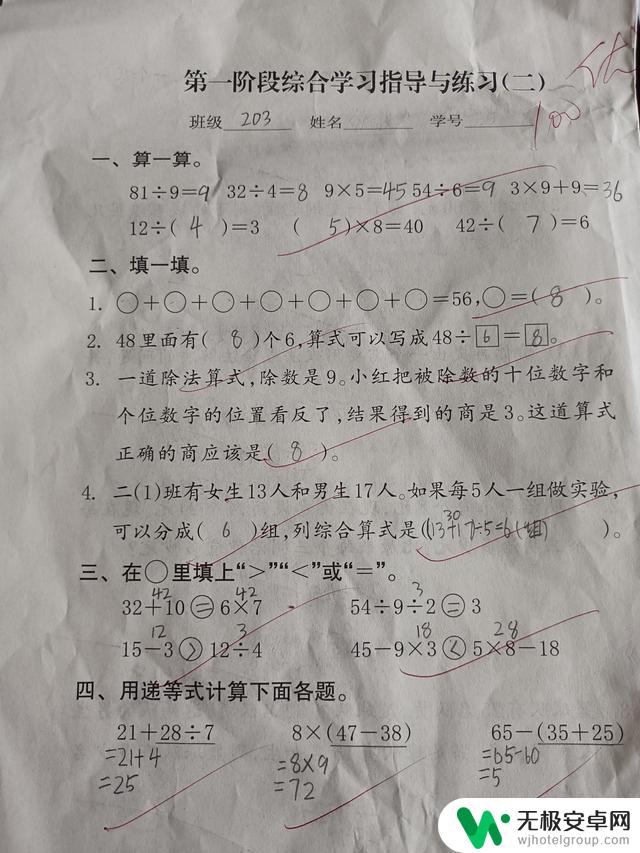 第一阶段综合学习指导与练习(二)
优
100
班级 203 姓名 学号
一、算一算。
81÷9=9 32÷4=8 9×5=45 54÷6=9 3×9+9=36
12÷( 4 )=3 ( 5 )×8=40 42÷( 7 )=6
二、填一填。
1. ○+○+○+○+○+○+○=56,○=( 8 )。
2. 48里面有( 8 )个6,算式可以写成48÷6=8。
3. 一道除法算式,除数是9。小红把被除数的十位数字和
个位数字的位置看反了,结果得到的商是3。这道算式
正确的商应该是( 8 )。
4. 二(1)班有女生13人和男生17人。如果每5人一组做实验,
30
可以分成( 6 )组,列综合算式是((13+17)÷5=6(组) )。
三、在○里填上“>”“<”或“=”。
42 42 3
32+10=6×7 54÷9÷2=3
12 3 18 28
15-3>12÷4 45-9×3<5×8-18
四、用递等式计算下面各题。
21+28÷7 8×(47-38) 65-(35+25)
=21+4 =8×9 =65-60
=25 =72 =5
无极安卓网
wjhotelgroup.com